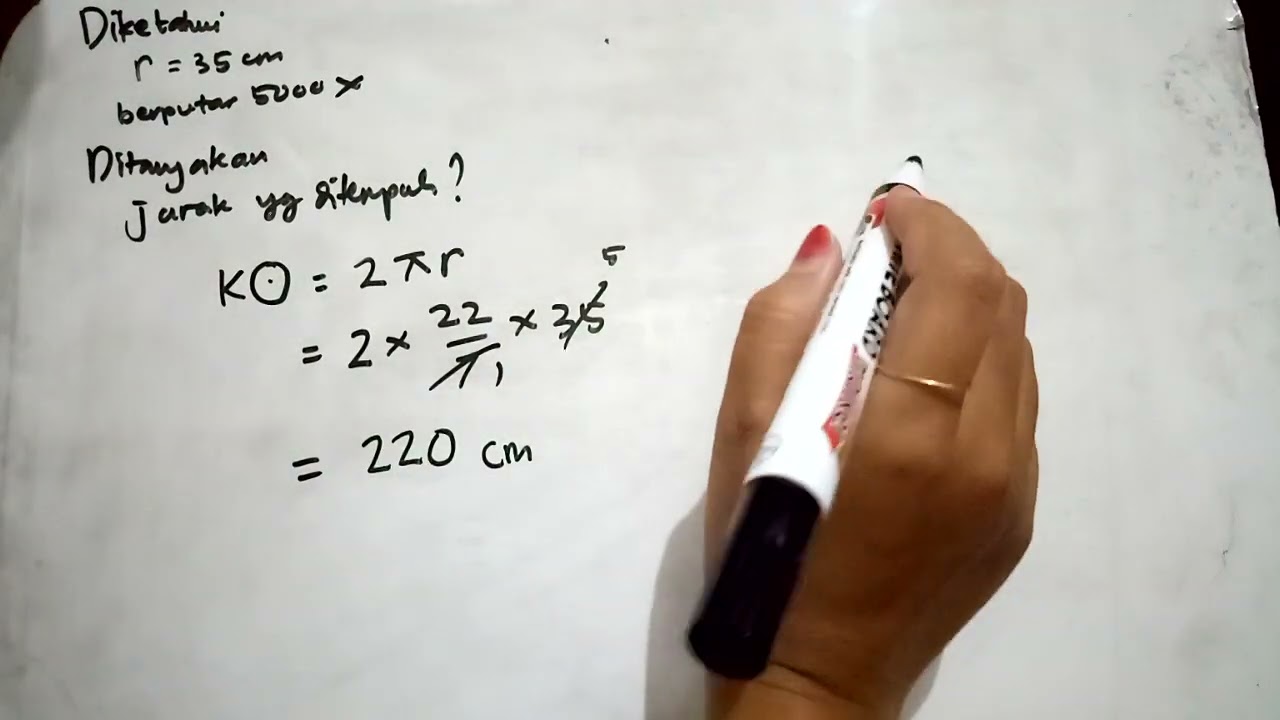 Diketahui
r = 35 cm
berputar 5000 x
Ditanyakan
Jarak yg ditempuh?
K⊙ = 2πr
= 2 × 22/7 1 × 35 5
= 220 cm